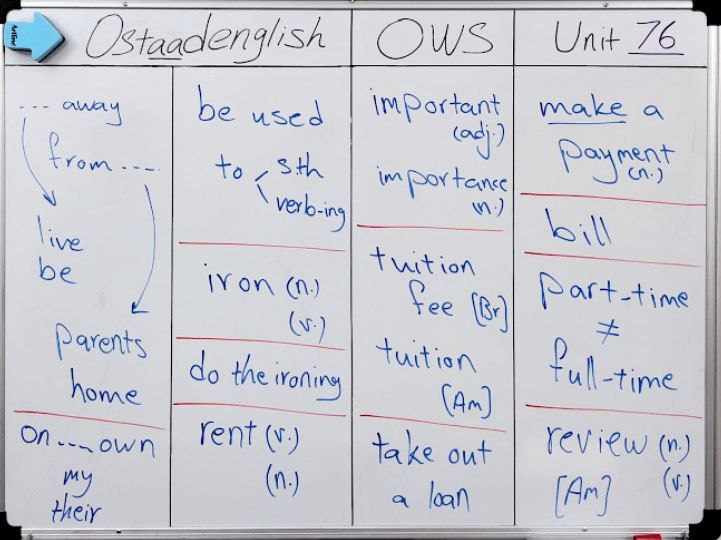 Artline
Ostaadenglish
OWS
Unit 76
--- away
from ----
live
be
parents
home
on --- own
my
their
be used
to sth
verb-ing
iron (n.)
(v.)
do the ironing
rent (v.)
(n.)
important
(adj.)
importance
(n.)
tuition
fee [Br]
tuition
[Am]
take out
a loan
make a
payment
(n.)
bill
part-time
≠
full-time
review (n.)
[Am] (v.)